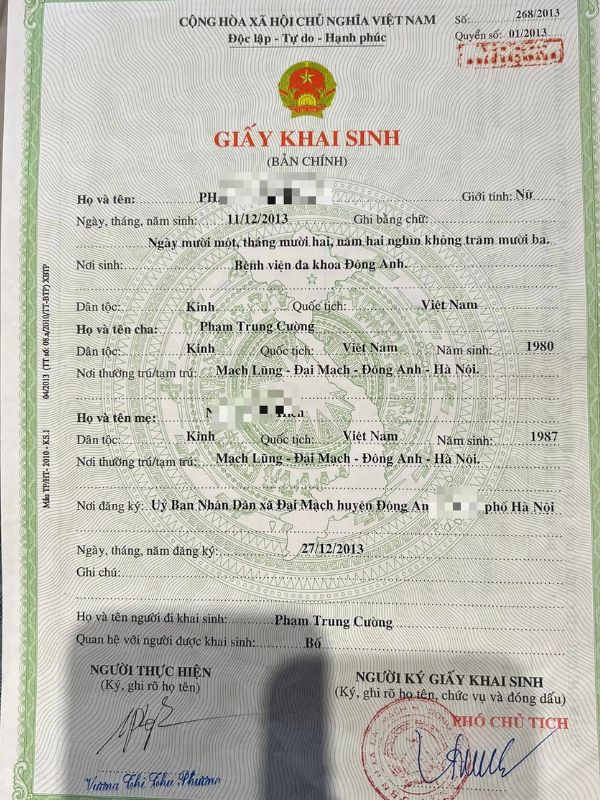 CỘNG HÒA XÃ HỘI CHỦ NGHĨA VIỆT NAM
Độc lập - Tự do - Hạnh phúc
Số: 268/2013
Quyển số: 01/2013
GIẤY KHAI SINH
(BẢN CHÍNH)
Họ và tên: Giới tính: Nữ
Ngày, tháng, năm sinh: 11/12/2013 Ghi bằng chữ:
Ngày mười một, tháng mười hai, năm hai nghìn không trăm mười ba.
Nơi sinh: Bệnh viện đa khoa Đông Anh.
Dân tộc: Kinh Quốc tịch: Việt Nam
Họ và tên cha: Phạm Trung Cường
Dân tộc: Kinh Quốc tịch: Việt Nam Năm sinh: 1980
Nơi thường trú/tạm trú: Mạch Lũng - Đại Mạch - Đông Anh - Hà Nội.
Họ và tên mẹ:
Dân tộc: Kinh Quốc tịch: Việt Nam Năm sinh: 1987
Nơi thường trú/tạm trú: Mạch Lũng - Đại Mạch - Đông Anh - Hà Nội.
Nơi đăng ký: Uỷ Ban Nhân Dân xã Đại Mạch huyện Đông An phố Hà Nội
Ngày, tháng, năm đăng ký: 27/12/2013
Ghi chú:
Họ và tên người đi khai sinh: Phạm Trung Cường
Quan hệ với người được khai sinh: Bố
NGƯỜI THỰC HIỆN
(Ký, ghi rõ họ tên)
Vương Thị Thu Phương
NGƯỜI KÝ GIẤY KHAI SINH
(Ký, ghi rõ họ tên, chức vụ và đóng dấu)
PHÓ CHỦ TỊCH
Mẫu TP/HT- 2010 - KS.1 04/2013 (TT số: 08.a/2010/TT-BTP) XBTP